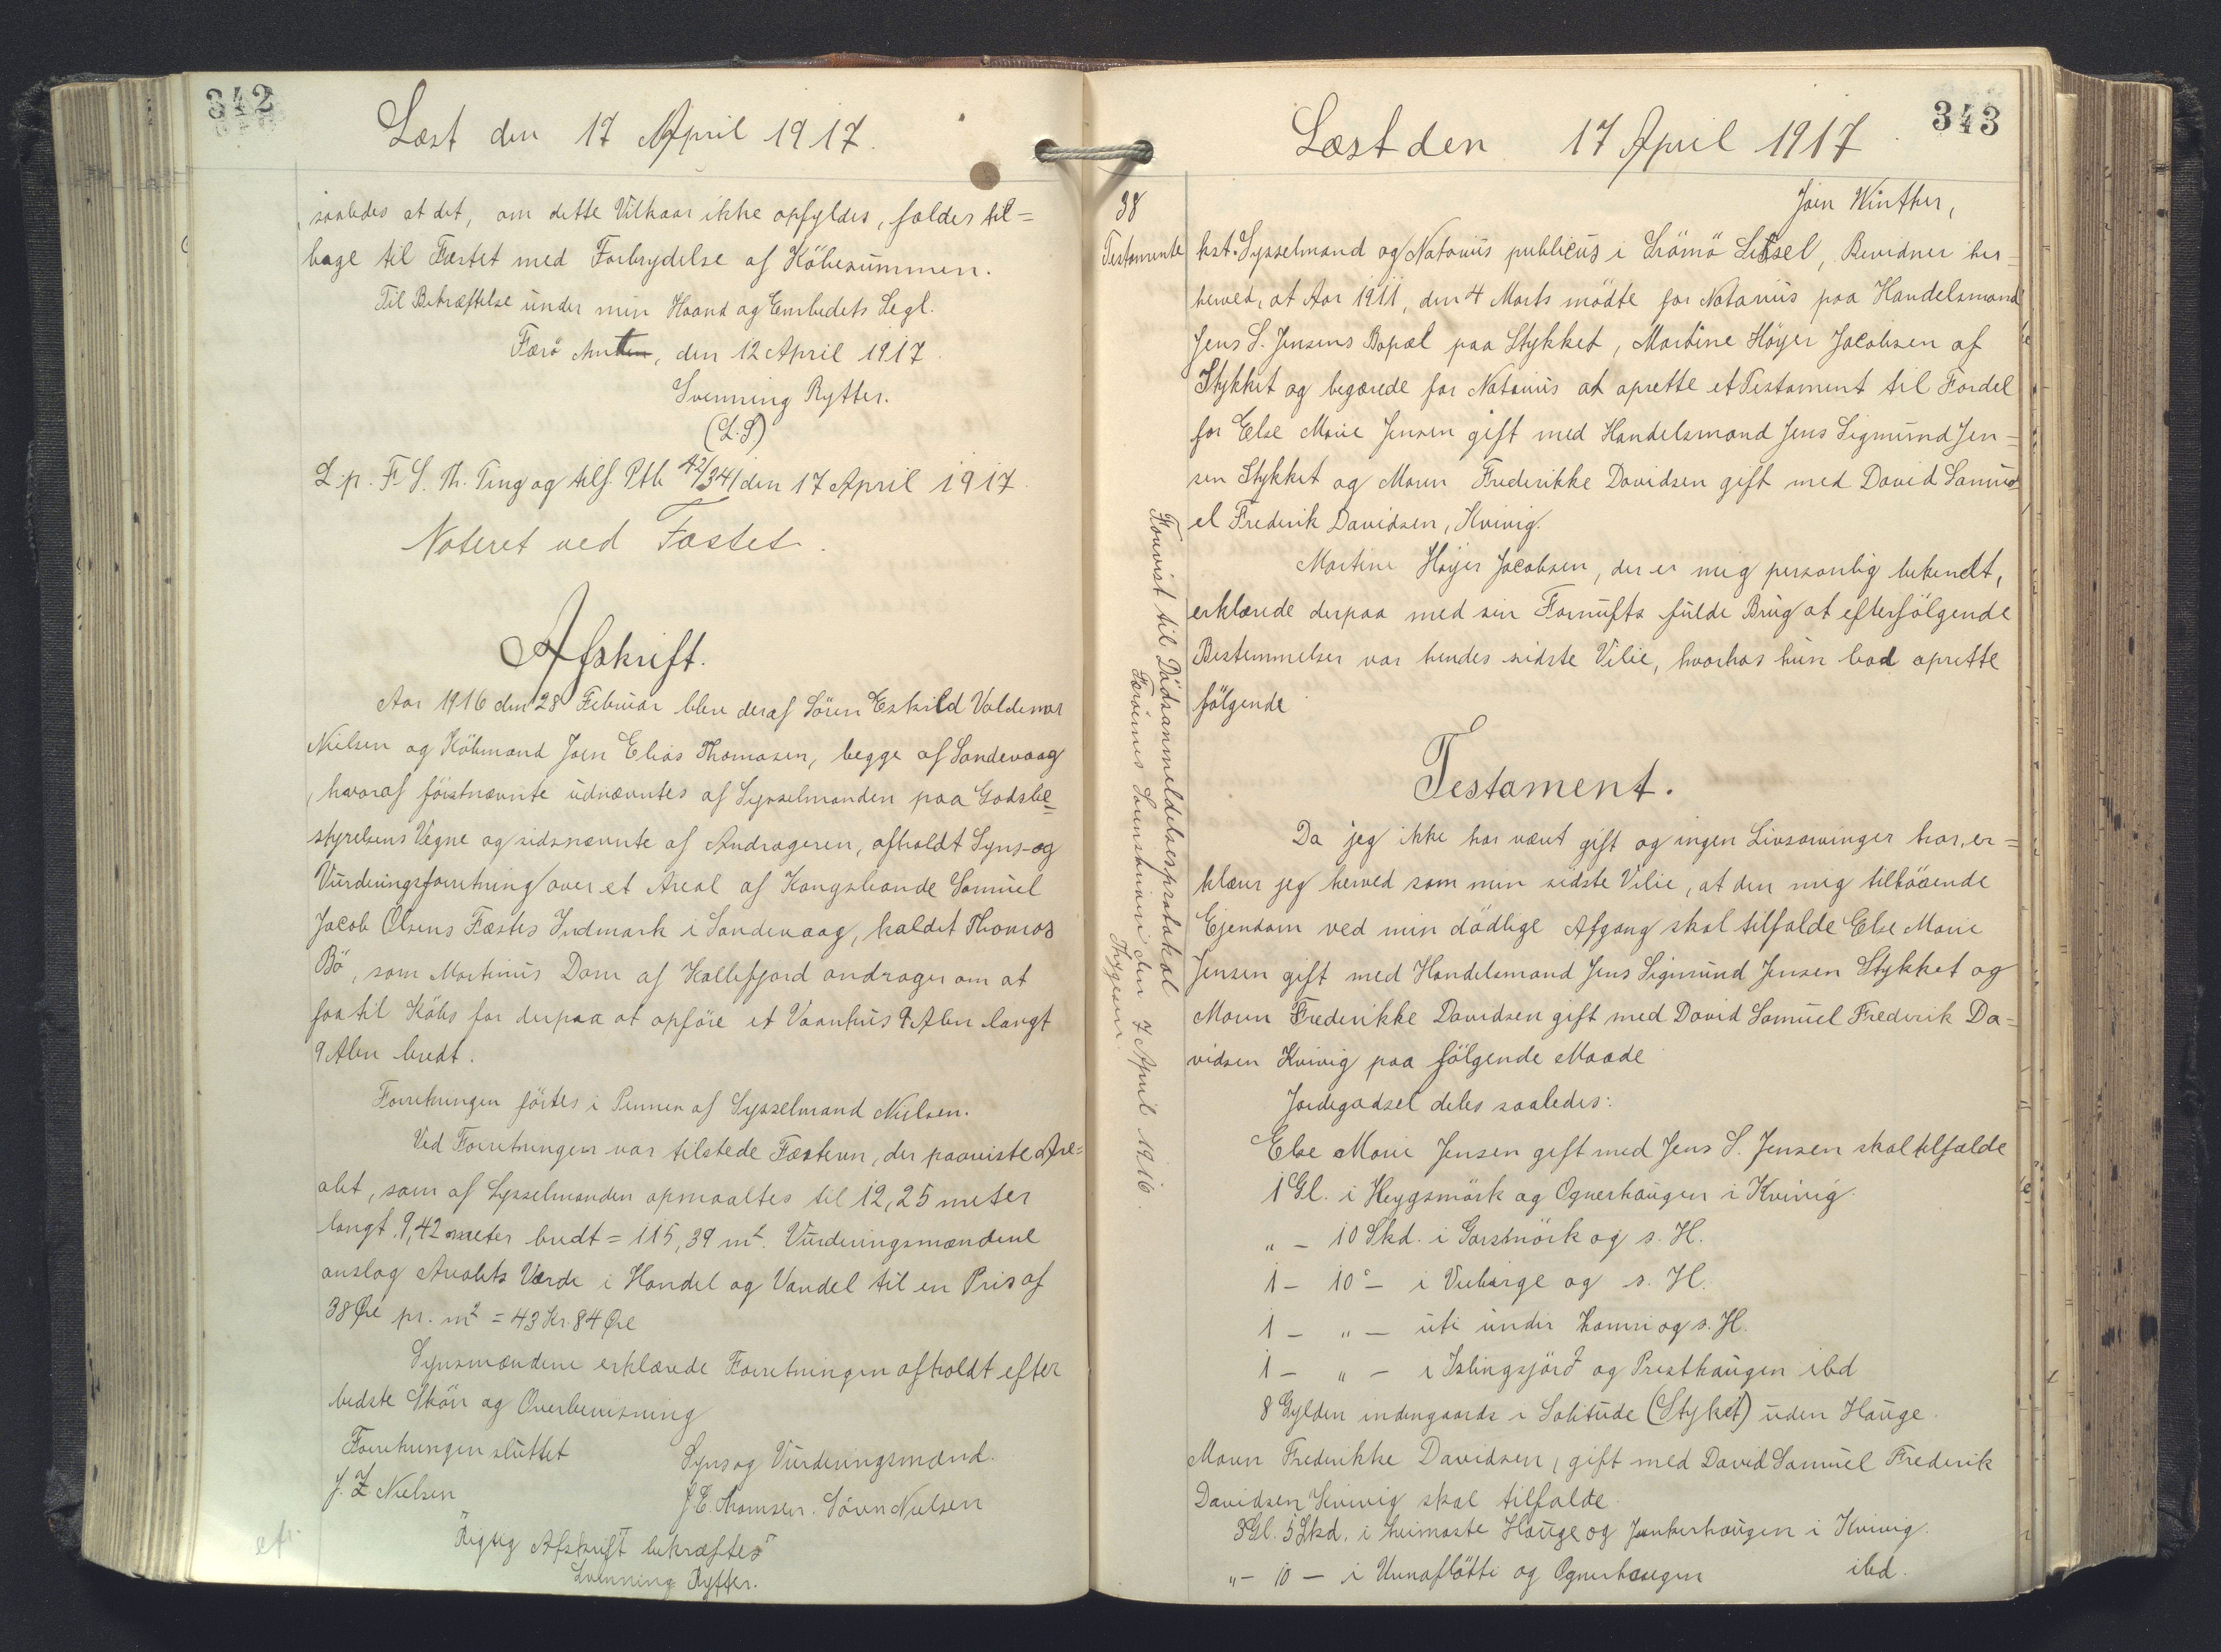 342
Læst den 17 April 1917.
saaledes at det, om dette Vilkaar ikke opfyldes, falder til=
bage til Fæstet med Forbrydelse af Köbesummen.
Til Bekræftelse under min Haand og Embedets Segl.
Færö Amt, den 12 April 1917.
Svenning Rytter.
(L.S)
L. p. F. S. Th. Ting og tilf. Ptk 42/341 den 17 April 1917.
Noteret ved Fæstet.
Afskrift.
Aar 1916 den 28 Februar blev deraf Sören Eskild Valdemar
Nielsen og Köbmand Joen Elias Thomasen, begge af Sandevaag
, hvoraf förstnævnte udnævntes af Sysselmanden paa Godsbe=
styrelsens Vegne og sidsnævnte af Andrageren, afholdt Syns- og
Vurderingsforretning over et Areal af Kongsbonde Samuel
Jacob Olsens Fæstes Indmark i Sandevaag, kaldet Thomas
Bö, som Martinus Dam af Kollefjord andrager om at
faa til Köbs for derpaa at opföre et Vaanhus 9 Alen langt
9 Alen bredt.
Forretningen förtes i Pennen af Sysselmand Nielsen.
Ved Forretningen var tilstede Fæsteren, der paaviste Are=
alet, som af Sysselmanden opmaaltes til 12,25 meter
langt 9,42 meter bredt = 115,39 m². Vurderingsmændene
anslog Arealets Værde i Handel og Vandel til en Pris af
38 Öre pr. m² = 43 Kr. 84 Öre
Synsmændene erklærede Forretningen afholdt efter
bedste Skön og Overbevisning
Forretningen sluttet
Syns og Vurderingsmænd.
J. Z. Nielsen
J. E. Thomsen. Sören Nielsen
Rigtig Afskrift bekræftes
Svenning Rytter.
343
Læst den 17 April 1917.
Joen Winther,
38
Testamente
kst. Sysselmand og Notarius publicus i Strömö Syssel, Bevidner her=
herved, at Aar 1911, den 4 Marts mödte for Notarius paa Handelsmand
Jens S. Jensens Bopæl paa Stykket, Martine Höyer Jacobsen af
Stykket og begærede for Notarius at oprette et Testament til Fordel
for Else Marie Jensen gift med Handelsmand Jens Sigmund Jen=
sen Stykket og Maren Frederikke Davidsen gift med David Samu=
el Frederik Davidsen, Kvivig.
Martine Höyer Jacobsen, der er mig personlig bekendt,
erklærede derpaa med sin Fornufts fulde Brug at efterfölgende
Bestemmelser var hendes sidste Vilie, hvorhos hun bad oprette
fölgende
Testament.
Da jeg ikke har været gift og ingen Livsarvinger har, er=
klærer jeg herved som min sidste Vilie, at den mig tilhörende
Ejendom ved min dödlige Afgang skal tilfalde Else Marie
Jensen gift med Handelsmand Jens Sigmund Jensen Stykket og
Maren Frederikke Davidsen gift med David Samuel Frederik Da=
vidsen Kvivig paa fölgende Maade
Jordegodset deles saaledes:
Else Marie Jensen gift med Jens S. Jensen skal tilfalde
1 Gl. i Heygsmörk og Ognerhaugen i Kvivig.
" - 10 Skd. i Garsmörk og s. H.
1 - 10 - i Veberge og s. H.
1 - " - uti under Hamri og s. H.
1 - " - i Islingsjörd og Presthaugen ibd
8 Gylden indengaards i Solitude (Styket) uden Hauge.
Maren Frederikke Davidsen, gift med David Samuel Frederik
Davidsen Kvivig skal tilfalde
3 Gl. 5 Skd. i heimaste Hauge og Junkerhaugen i Kvivig.
" - 10 - i Unnaflötti og Ognerhaugen ibd.
Forevist til Dödsanmeldelsesprotokol
Færöernes Sorenskriveri, den 7 April 1916.
Thygesen